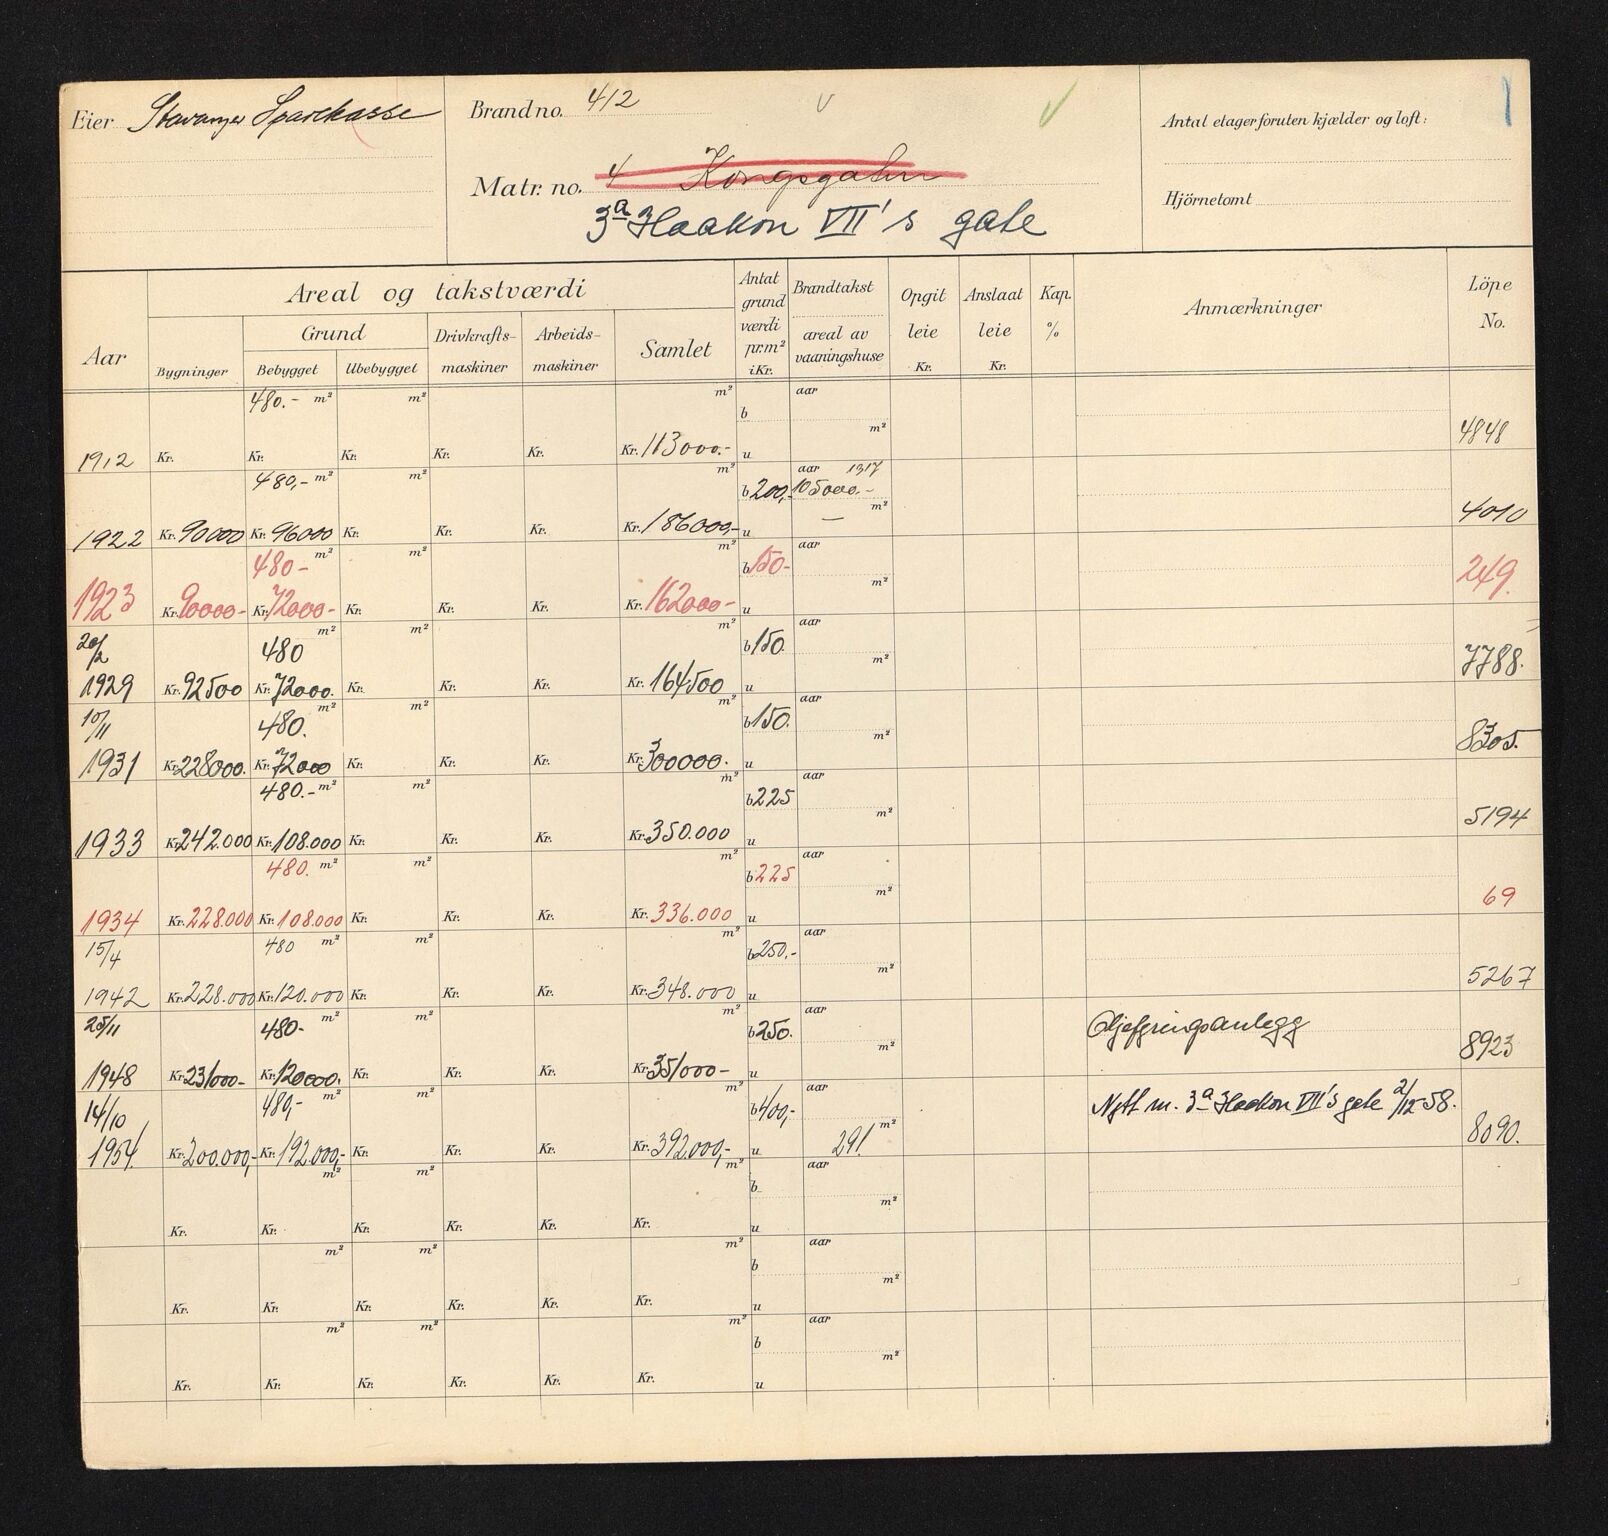 Eier Stavanger Sparekasse
Brand no. 412
Matr. no. 4 Kongsgaten
3a Haakon VII's gate
Antal etager foruten kjælder og loft:
Hjörnetomt
1
Aar
Areal og takstværdi
Bygninger
Grund
Bebygget
Ubebygget
Drivkrafts-maskiner
Arbeids-maskiner
Samlet
Antat grund værdi pr. m² i Kr.
Brandtakst
areal av vaaningshuse
Opgit leie Kr.
Anslaat leie Kr.
Kap. %
Anmærkninger
Löpe No.
480.- m² m² m² b aar
m²
1912 Kr. Kr. Kr. Kr. Kr. Kr. 113000.- u 4848
480,- m² m² m² b 200,- aar 1317
105000.-
m²
1922 Kr. 90000 Kr. 96000 Kr. Kr. Kr. Kr. 186000,- u — 4010
480- m² m² m² b 150- aar
m²
1923 Kr. 90000- Kr. 72000- Kr. Kr. Kr. Kr. 162000- u 249.
20/2 480 m² m² m² b 150. aar
m²
1929 Kr. 92500 Kr. 72000. Kr. Kr. Kr. Kr. 164500 u 7788.
10/11 480. m² m² m² b 150. aar
m²
1931 Kr. 228000. Kr. 72000 Kr. Kr. Kr. Kr. 300000. u 8305.
480.- m² m² m² b 225 aar
m²
1933 Kr. 242.000 Kr. 108.000 Kr. Kr. Kr. Kr. 350.000 u 5194
480. m² m² m² b 225 aar
m²
1934 Kr. 228.000 Kr. 108.000 Kr. Kr. Kr. Kr. 336.000 u 69
15/4 480 m² m² m² b 250,- aar
m²
1942 Kr. 228.000 Kr. 120.000 Kr. Kr. Kr. Kr. 348.000 u 5267
25/11 480- m² m² m² b 250. aar Oljefyringsanlegg
m²
1948 Kr. 231000- Kr. 120000. Kr. Kr. Kr. Kr. 351000- u 8923
14/10 480,- m² m² m² b 400,- aar Nytt nr. 3a Haakon VII's gate 2/12-58.
m²
1954. Kr. 200.000,- Kr. 192.000,- Kr. Kr. Kr. Kr. 392.000,- u 291 8090.
m² m² m² b aar
m²
Kr. Kr. Kr. Kr. Kr. Kr. u
m² m² m² b aar
m²
Kr. Kr. Kr. Kr. Kr. Kr. u
m² m² m² b aar
m²
Kr. Kr. Kr. Kr. Kr. Kr. u